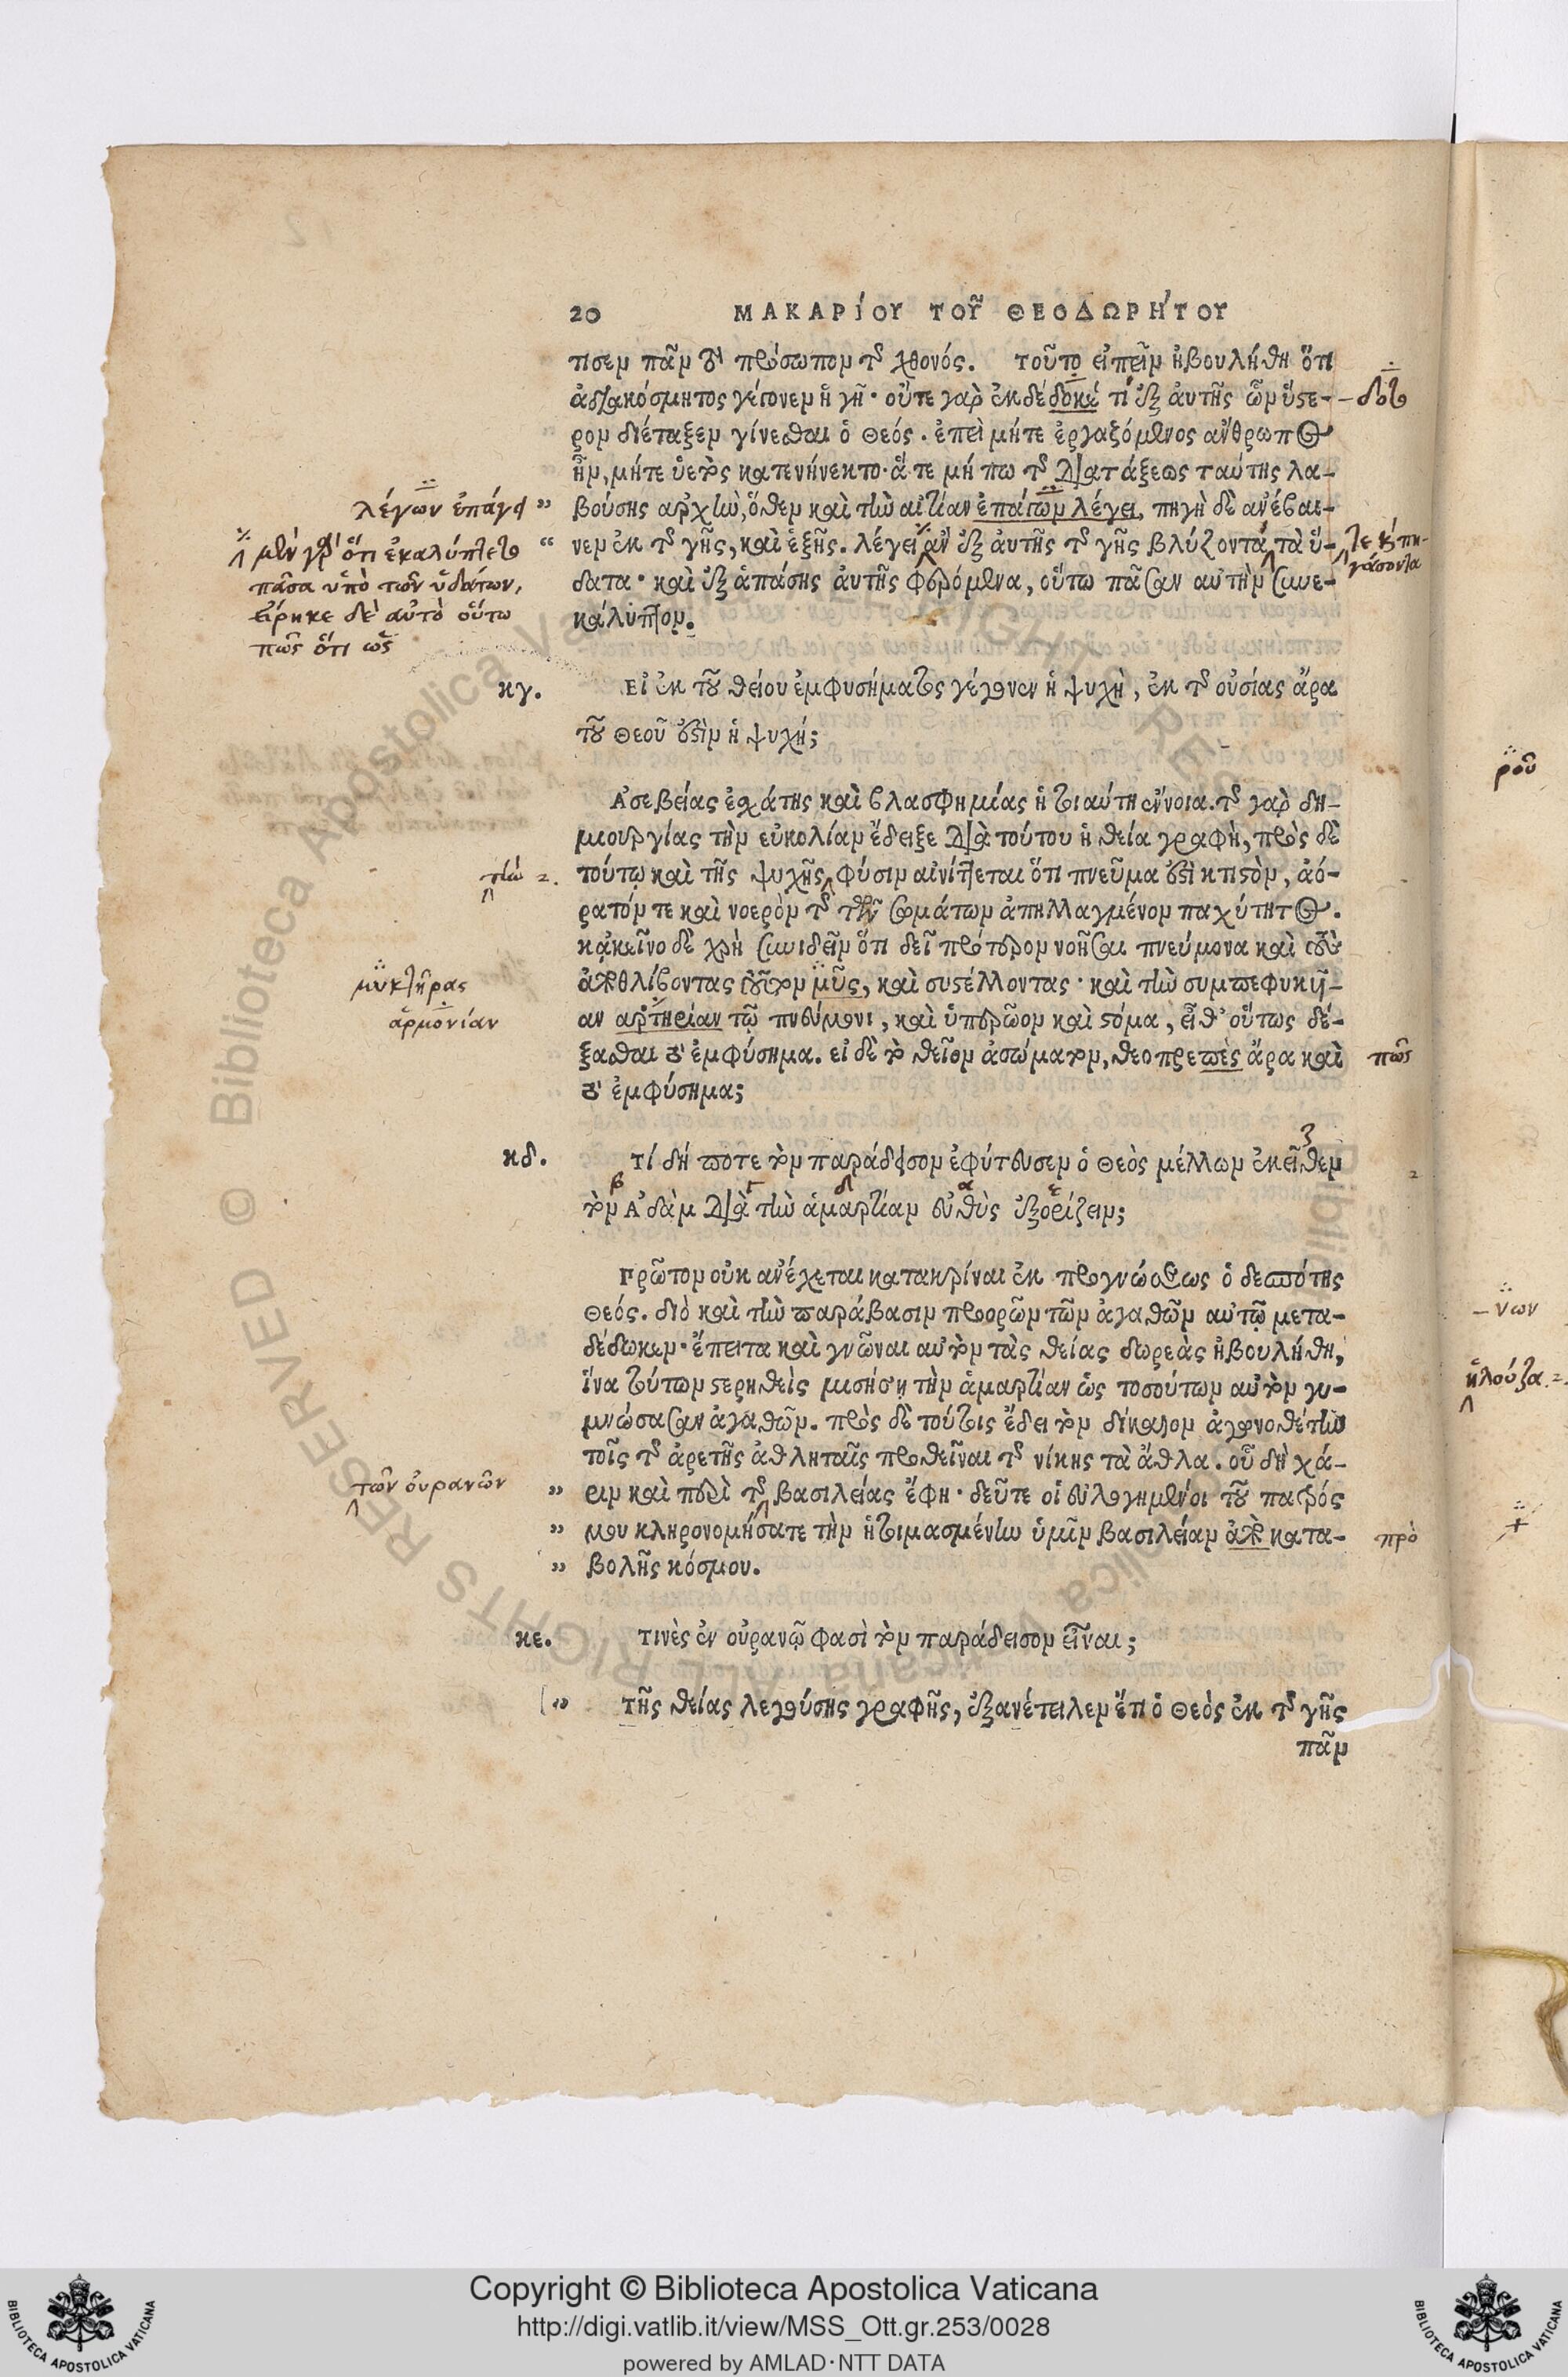 20 ΜΑΚΑΡίΟΥ ΤΟΥ͂ ΘΕΟΔΩΡΉΤΟΥ
τισεν πᾶν τὸ πρόσωπον τῆς χθονός. τοῦτο εἰπεῖν ἠβουλήθη ὅτι
ἀδιακόσμητος γέγονεν ἡ γῆ· οὔτε γὰρ ἐκδέδοκέ τι ἐξ ἀυτῆς ὧν ὕστε-
ρον διέταξεν γίνεσθαι ὁ θεός. ἐπεὶ μήτε ἐργαζόμενος ἄνθρωπος
ἦν, μήτε ὑετὸς κατενήνεκτο· ἅτε μή πω τῆς διατάξεως ταύτης λα-
λέγων ἐπάγει
” βούσης ἀρχὴν, ὅθεν καὶ τὴν αἰτίαν ἐπάγων λέγει, πηγὴ δὲ ἀνέβαι-
“ νεν ἐκ τῆς γῆς, καὶ ἑξῆς. λέγει ἂν ἐξ ἀυτῆς τῆς γῆς βλύζοντα τὰ ὕ-
δατα· καὶ ἐξ ἁπάσης ἀυτῆς φερόμενα, οὕτω πᾶσαν αὐτὴν συνε-
κάλυπτον.
μὲν γὰρ ὅτι ἐκαλύπτετο
πᾶσα ὑπὸ τῶν ὑδάτων,
εἴρηκε δὲ αὐτὸ οὕτω
πῶς ὅτι ὡς
κγ. Εἰ ἐκ τοῦ θείου ἐμφυσήματος γέγονεν ἡ ψυχὴ, ἐκ τῆς οὐσίας ἄρα
τοῦ θεοῦ ἐστὶν ἡ ψυχή;
Ἀσεβείας ἐσχάτης καὶ βλασφημίας ἡ τοιαύτη ἔννοια. τῆς γὰρ δη-
μιουργίας τὴν εὐκολίαν ἔδειξε διὰ τούτου ἡ θεία γραφὴ, πρὸς δὲ
τὴν 2.
τούτῳ καὶ τῆς ψυχῆς φύσιν αἰνίττεται ὅτι πνεῦμα ἐστὶ κτιστὸν, ἀό-
ρατόν τε καὶ νοερὸν τῆς τῶν σωμάτων ἀπηλλαγμένον παχύτητος.
κἀκεῖνο δὲ χρὴ συνιδεῖν ὅτι δεῖ πρότερον νοῆσαι πνεύμονα καὶ τοὺς
μυκτῆρας
ἀποθλίβοντας τοῦτον μῦς, καὶ συστέλλοντας· καὶ τὴν συμπεφυκυῖ-
ἁρμονίαν
αν ἀρτηρίαν τῷ πνεύμονι, καὶ ὑπερῶον καὶ στόμα, εἶθ' οὕτως δέ-
ξασθαι τὸ ἐμφύσημα. εἰ δὲ τὸ θεῖον ἀσώματον, θεοπρεπὲς ἄρα καὶ πῶς
τὸ ἐμφύσημα;
κδ. Τί δή ποτε τὸν παράδεισον ἐφύτευσεν ὁ θεὸς μέλλων ἐκεῖθεν
τὸν Ἀδὰμ διὰ τὴν ἁμαρτίαν εὐθὺς ἐξορίζειν;
Πρῶτον οὐκ ἀνέχεται κατακρίναι ἐκ προγνώσεως ὁ δεσπότης
θεός. διὸ καὶ τὴν παράβασιν προορῶν τῶν ἀγαθῶν αὐτῷ μετα-
δέδωκεν· ἔπειτα καὶ γνῶναι αὐτὸν τὰς θείας δωρεὰς ἠβουλήθη,
ἵνα τούτων στερηθεὶς μισήσῃ τὴν ἁμαρτίαν ὡς τοσούτων αὐτὸν γυ-
μνώσασαν ἀγαθῶν. πρὸς δὲ τούτοις ἔδει τὸν δίκαιον ἀγωνοθέτην
τοῖς τῆς ἀρετῆς ἀθληταῖς προθεῖναι τῆς νίκης τὰ ἄθλα. οὗ δὴ χά-
τῶν οὐρανῶν
” ριν καὶ περὶ τῆς βασιλείας ἔφη· δεῦτε οἱ εὐλογημένοι τοῦ πατρός
” μου κληρονομήσατε τὴν ἡτοιμασμένην ὑμῖν βασιλείαν ἀπὸ κατα- πρὸ
” βολῆς κόσμου.
κε. Τινὲς ἐν οὐρανῷ φασὶ τὸν παράδεισον εἶναι;
” Τῆς θείας λεγούσης γραφῆς, ἐξανέτειλεν ἔτι ὁ θεὸς ἐκ τῆς γῆς
πᾶν
ροῦ
-νων
πλούζα. 2.
Copyright © Biblioteca Apostolica Vaticana
http://digi.vatlib.it/view/MSS_Ott.gr.253/0028
powered by AMLAD·NTT DATA
BIBLIOTECA APOSTOLICA VATICANA
BIBLIOTECA APOSTOLICA VATICANA
Biblioteca Apostolica Vaticana ALL RIGHTS RESERVED ©